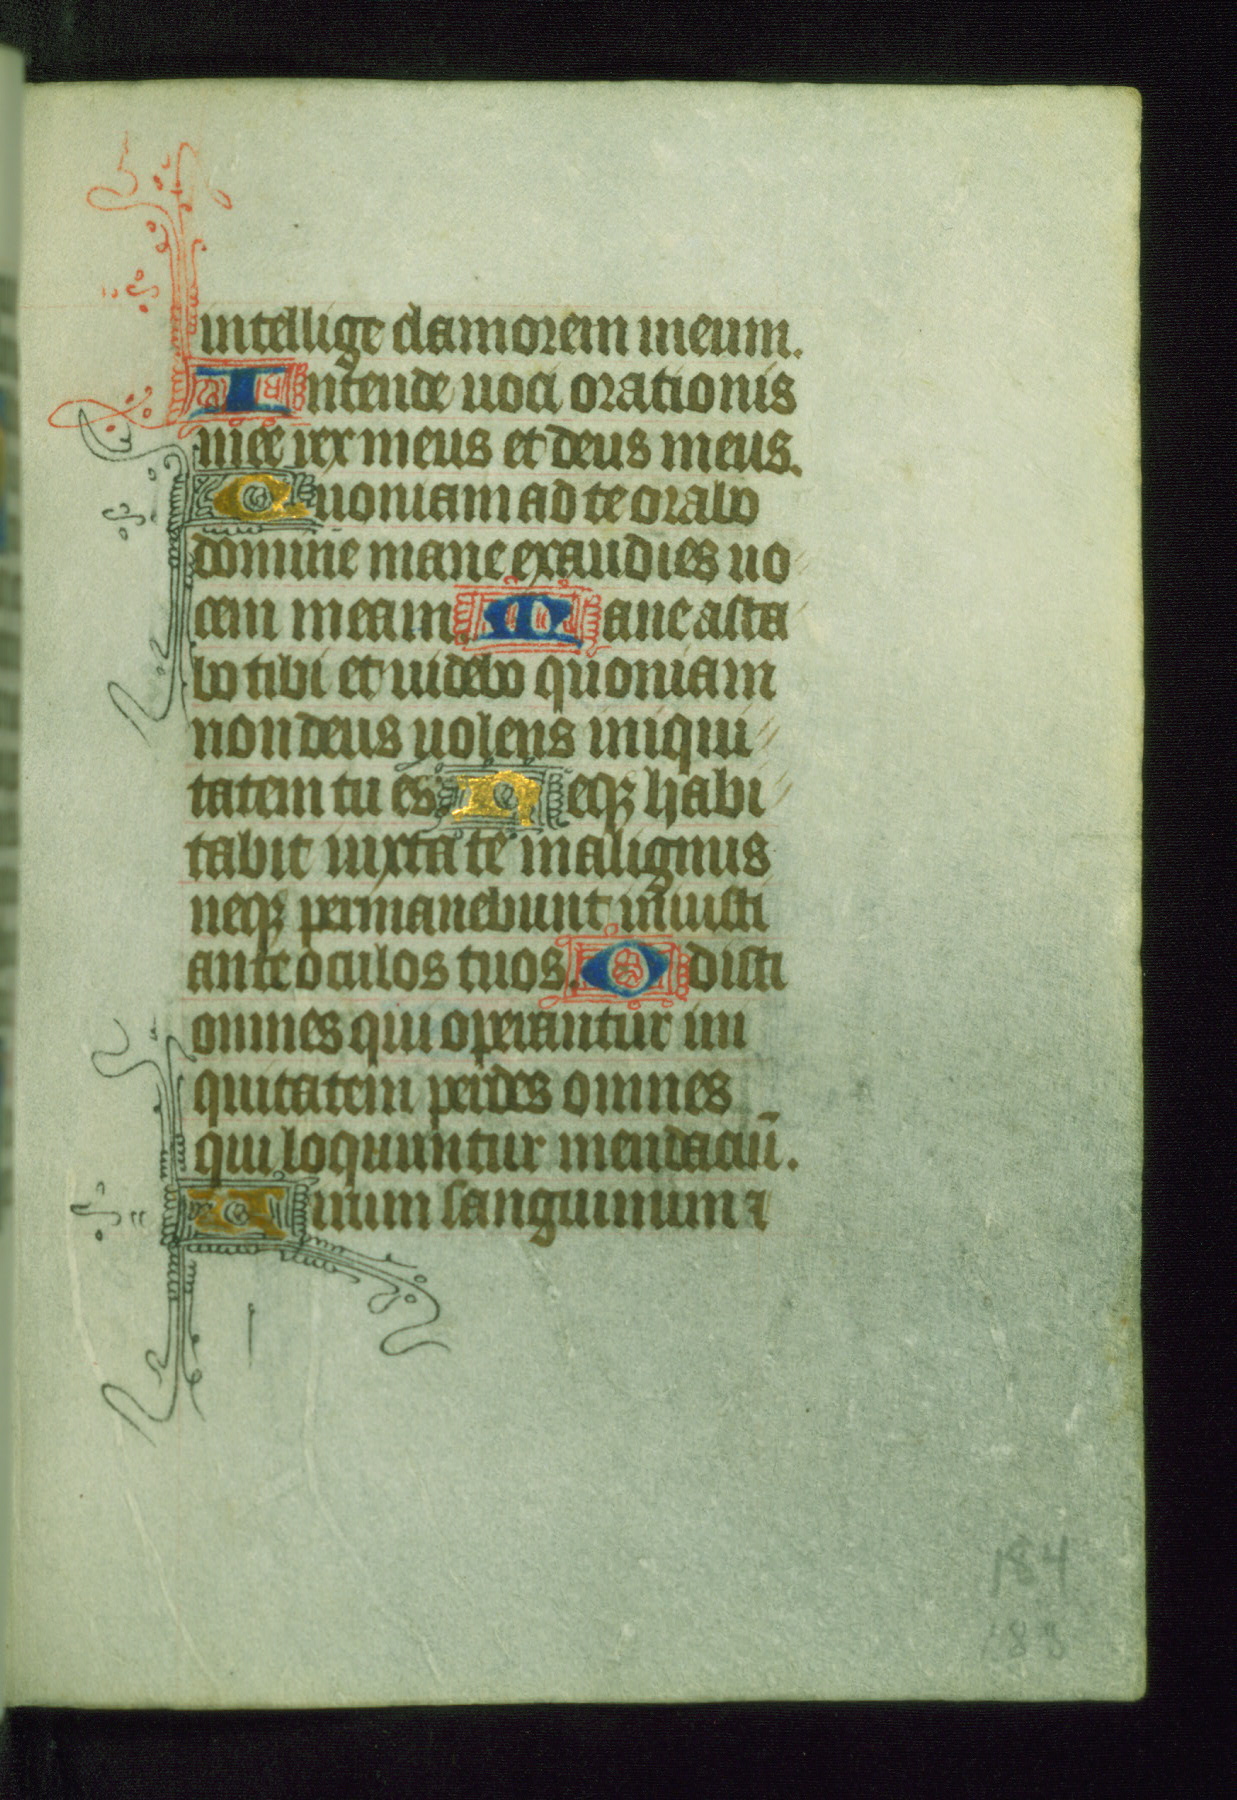 intellige clamorem meum.
Intende uoci orationis
mee rex meus et deus meus.
Quoniam ad te orabo
domine mane exaudies uo
cem meam. Mane asta
bo tibi et uidebo quoniam
non deus uolens iniqui
tatem tu es. Neqꝫ habi
tabit iuxta te malignus
neqꝫ permanebunt iniusti
ante oculos tuos. Odisti
omnes qui operantur ini
quitatem perdes omnes
qui loquuntur mendaciū.
Uirum sanguinum ⁊
184
188